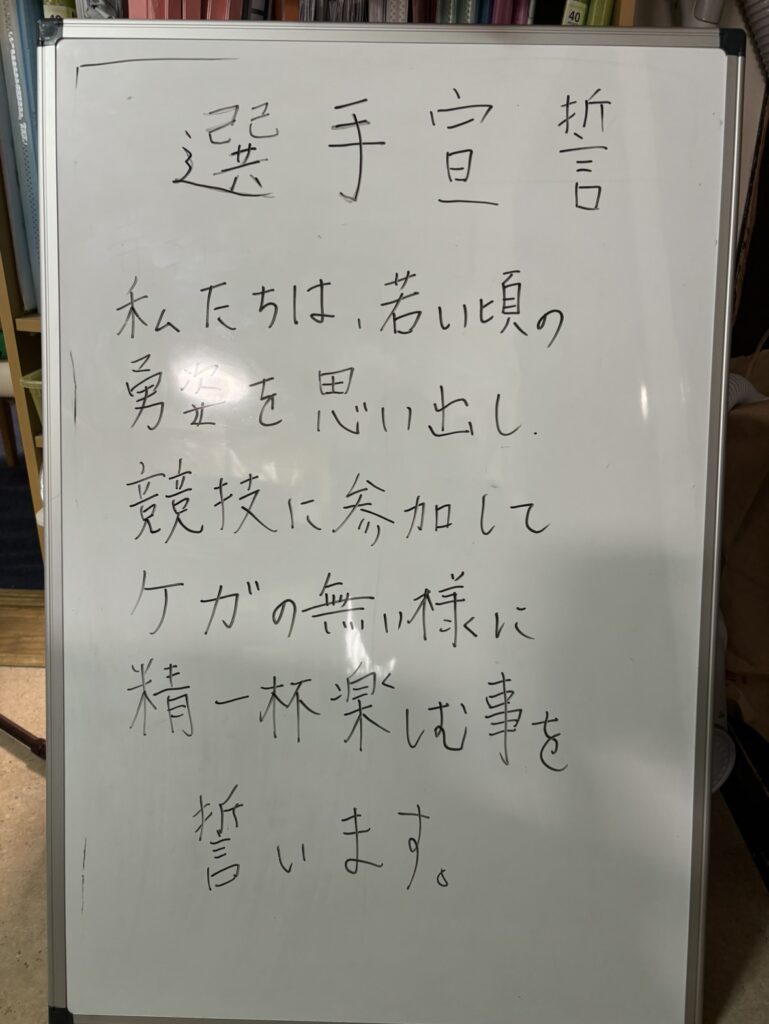 40
選手宣誓
私たちは、若い頃の
勇姿を思い出し、
競技に参加して
ケガの無い様に
精一杯楽しむ事を
誓います。